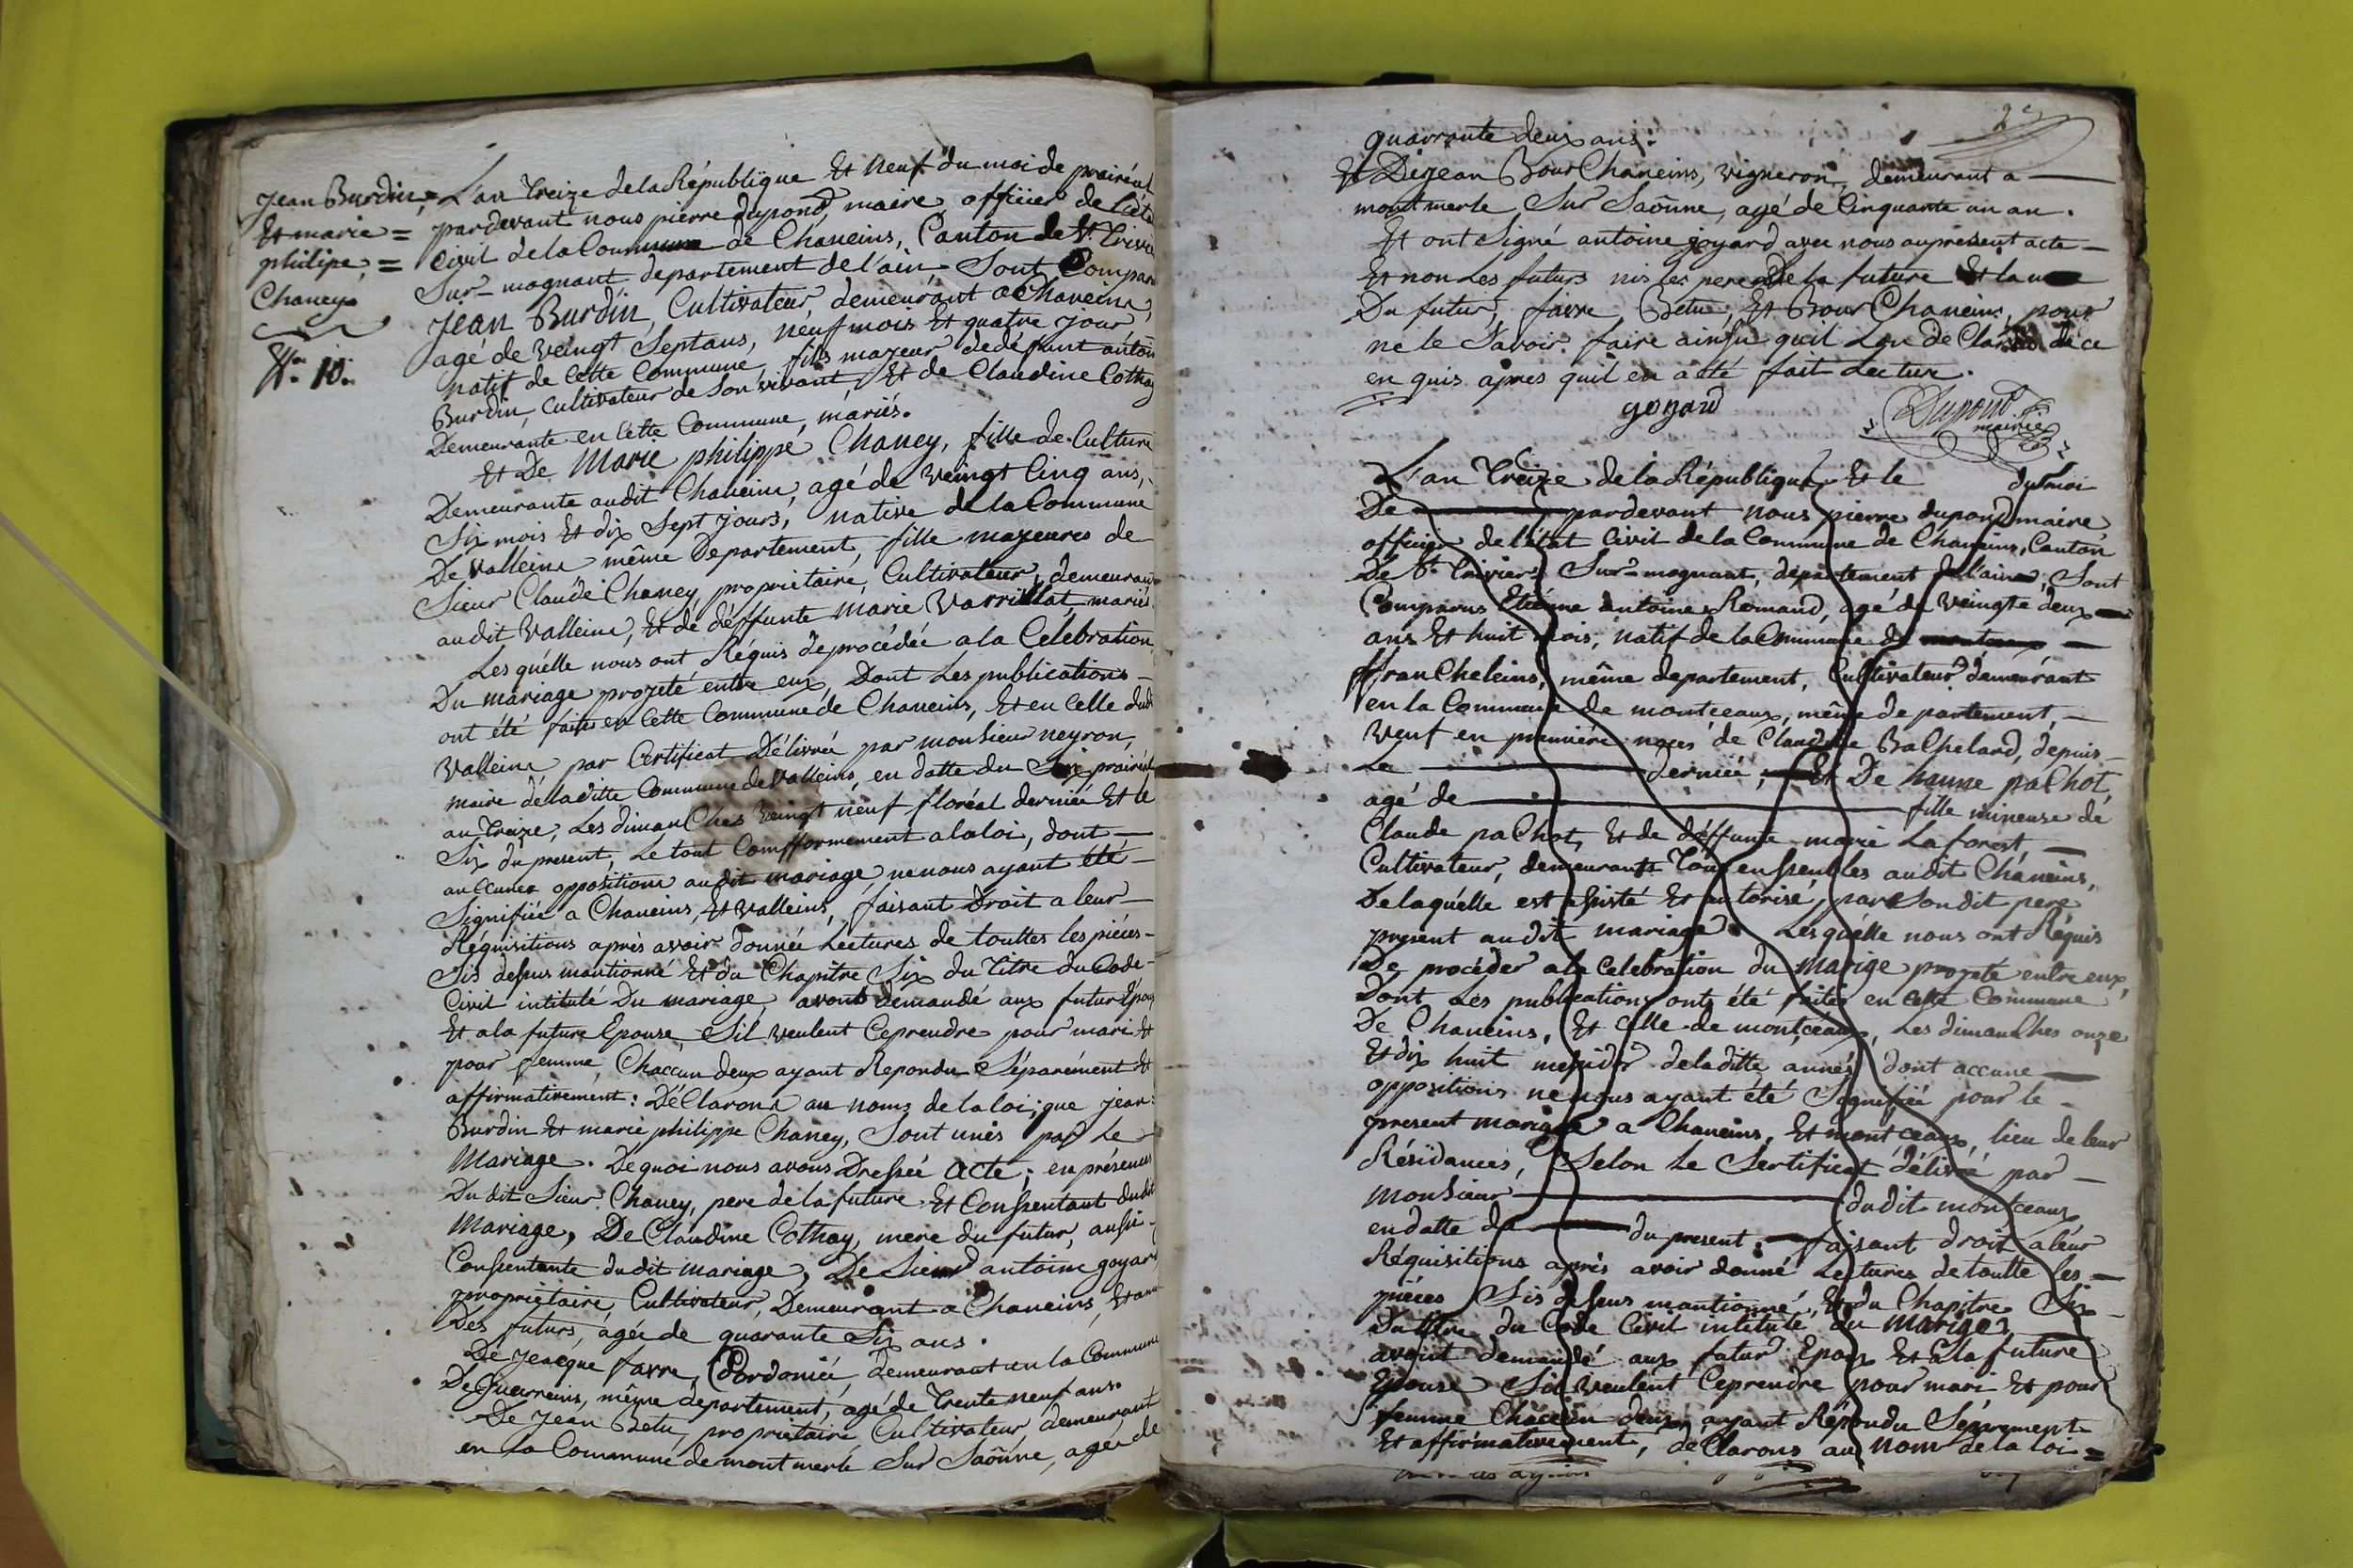 Jean Burdin,
Et marie =
philipe, =
Chaney
N.° 10.
L'an treize de la République Et neuf du moi de prairéal
pardevant nous pierre dupond, maire officier de L'éta
Civil de la Commune de Chaneins, Canton de St. Trivie
Sur-mognant departement de l'ain Sont Comparu
Jean Burdin Cultivateur, demeurant a Chaneins,
agé de veingt Septans, neuf mois Et quatre jour,
natif de Cette Commune, fils majeur dedéffunt antoin
Burdin, Cultivateur de Son vivant, Et de Claudine Cothay
Demeurante en Cette Commune, mariés.
Et De Marie philippe Chaney, fille de Culture
Demeurante audit Chaneins, agé de veingt Cinq ans,
Six mois Et dix Sept jours, native de la Commune
De Valleins même Departement, fille mayeures de
Sieur Claude Chaney propriétaire, Cultivateur, demeurant
audit Valleins, Et de déffunte Marie Varrillat mariés
Lesquélle nous ont Réquis deprocédée a la Célebration
Du mariage projeté entre eux, Dont Les publications-
ont été faites en Cette Commune de Chaneins, Et en Celle dudi
Valleins par Certificat Délivrée par monsieur neyron,
maire deladitte Commune de Valleins, en datte du Six prairéal
an treize, Les dimanches veingt neuf floréal derniée Et le
Six du present, Le tout Comfformement a la loi, dont —
auccunes oppositions audit mariage nenous ayant été —
Signifiée a Chaneins, Et Valleins, faisant Droit a leur —
Réquisitions après avoir donnée Lectures de touttes les piéces -
Sis desus mantionné Et du Chapitre Six du Titre du Code -
Civil intitulé Du mariage, avons demandé aux futur Epoux
Et a la future Epouse Sil veulent Ceprendre pour mari Et
pour femme Chaccun deux ayant Repondu Séparément Et
affirmativement: Déclarons au noms de la loi; que jean
Burdin Et marie philippe Chaney, Sont unis par le
Mariage. Dequoi nous avons Dressée acte; en présences
Du dit Sieur Chaney, pere de la future Et Conssentant dudit
Mariage, De Claudine Cothay, mere du futur, aussi -
Conssentante dudit mariage, De Sieur antoine goyard
propriétaire, Cultivateur, Demeurant a Chaneins,
Des futurs, agée de quarante Six ans.
De Jeacque favre, Cordoniée, demeurant en la Commune
De Guerreins, même departement, agé de Trente neuf ans.
De jean Betu, propriétaire Cultivateur, demeurant
en la Commune de montmerle Sur Saônne, agée de
quarrante deux ans.
Et De jean Bour Chaneins, vigneron, demeurant a —
montmerle Sur Saônne, agé de Cinquante un an.
Et ont Signé antoine joyard avec nous aupresent acte —
Et non Les futurs nis les pere de la future Et la
Du futur, favre, Betu, Et Bour Chaneins, pour
ne le Savoir faire ainsy quil Lon de Claré de ce
en quis après quil en a été fait Lecture.
goyard
Dupond
mairie
L'an Treize de la République Et le du moi
De — pardevant nous pierre dupond maire
officier de l'état Civil de la Commune de Chaneins, Canton
De St. Trivier Sur-mognant, département de l'ain, Sont
Comparus Etiénne antoine Romand, agé de veingte deux
ans Et huit mois, natif de la Commune de
ffrancheleins, même departement, Cultivateur demeurant
en la Commune de monteeaux, même departement, —
veuf en premiére noces de Claudine Bachelard, depuis —
Le — derniée, Et De hanne pachot,
agé de — fille mineuse de
Claude pachot, Et de déffunte marie Laforest, —
Cultivateur, demeurants Tous enssembles audit Chaneins,
Delaquélle est assisté Et autorisé, par Son dit pere
present audit mariage. Lesquélle nous ont Réquis
De procéder a la Celebration du Marige projeté entre eux,
Dont Les publications onts été faites en Cette Commune
De Chaneins, Et Celle de montçeaux, Les dimanches onze
Et dix huit mesidor deladitte année, dont accune —
oppositions nenous ayant été Signifiée pour le —
present mariage a Chaneins, Et montceaux, lieu de leur
Résidances, Selon Le Sertificat délivré par —
Monsieur — dudit montceaux
en datte du — du present, faisant droit aleur
Réquisitions après avoir donné Lectures de toutte les —
piéces Sis desus mantionné, Et du Chapitre Six —
Du titre du Code Civil intitulé du Marige,
avont demandé aux futur Epoux Et a la future
Epouse Sil veulent Ceprendre pour mari Et pour
femme Chaccun deux, ayant Répondu Séparement
Et affirmativement, déclarons au nom de la loi =